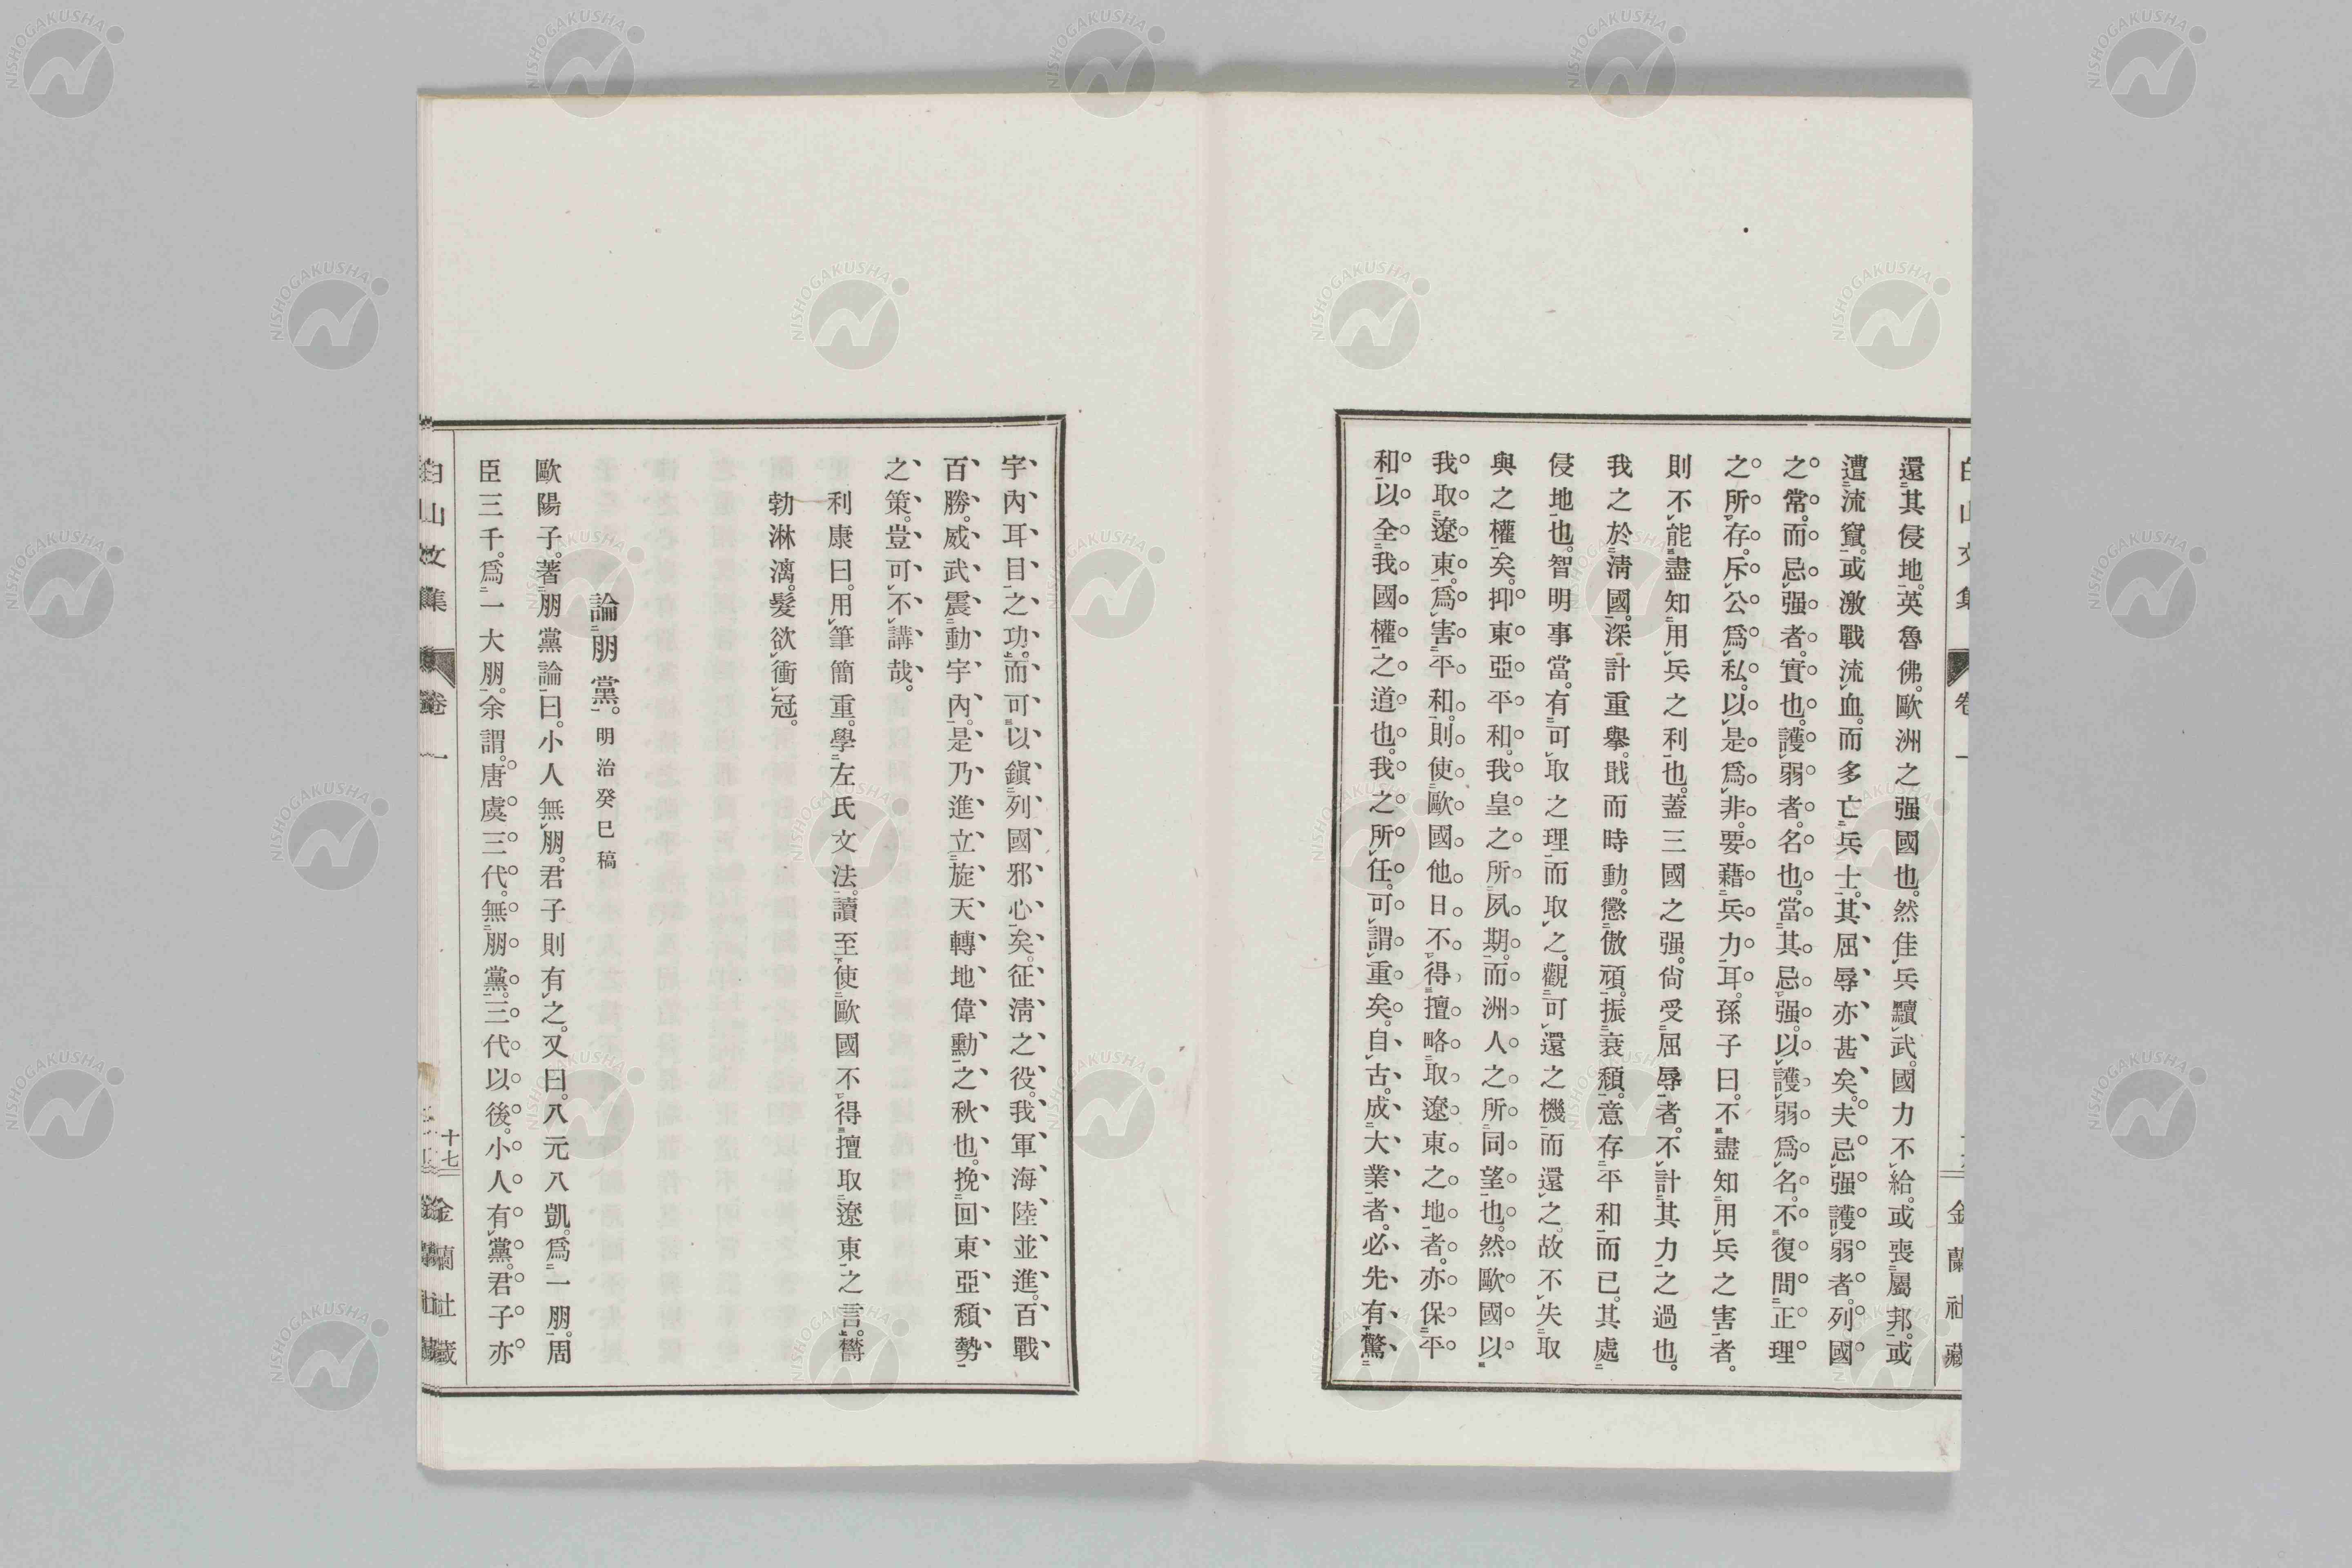 還其侵地。英魯佛。歐洲之强國也。然佳兵黷武。國力不給。或喪屬邦。或
遭流竄。或激戰流血。而多亡兵士。其屈辱亦甚矣。夫忌强護弱者。列國
之常。而忌强者。實也。護弱者。名也。當其忌强。以護弱爲名。不復問正理
之所存。斥公爲私。以是爲非。要藉兵力耳。孫子曰。不盡知用兵之害者。
則不能盡知用兵之利也。蓋三國之强。尙受屈辱者。不計其力之過也。
我之於淸國。深計重擧。戢而時動。懲傲頑。振衰頹。意存平和而已。其處
侵地也。智明事當。有可取之理。而取之。觀可還之機而還之。故不失取
與之權矣。抑東亞平和。我皇之所夙期。而洲人之所同望也。然歐國以
我取遼東。爲害平和。則使歐國他日不得擅略取遼東之地者。亦保平
和以全我國權之道也。我之所任。可謂重矣。自古。成大業者。必先有驚
宇內耳目之功。而可以鎭列國邪心矣。征淸之役。我軍海陸並進。百戰
百勝。威武震動宇內。是乃進立旋天轉地偉勳之秋也。挽回東亞頹勢
之策。豈可不講哉。
利康曰。用筆簡重。學左氏文法。讀至使歐國不得擅取遼東之言。欝
勃淋漓。髮欲衝冠。
論朋黨。明治癸巳稿
歐陽子。著朋黨論曰。小人無朋。君子則有之。又曰。八元八凱。爲一朋。周
臣三千。爲一大朋。余謂。唐虞三代。無朋黨。三代以後。小人有黨。君子亦
白山文集 卷一 十七 金蘭社藏
NISHOGAKUSHA